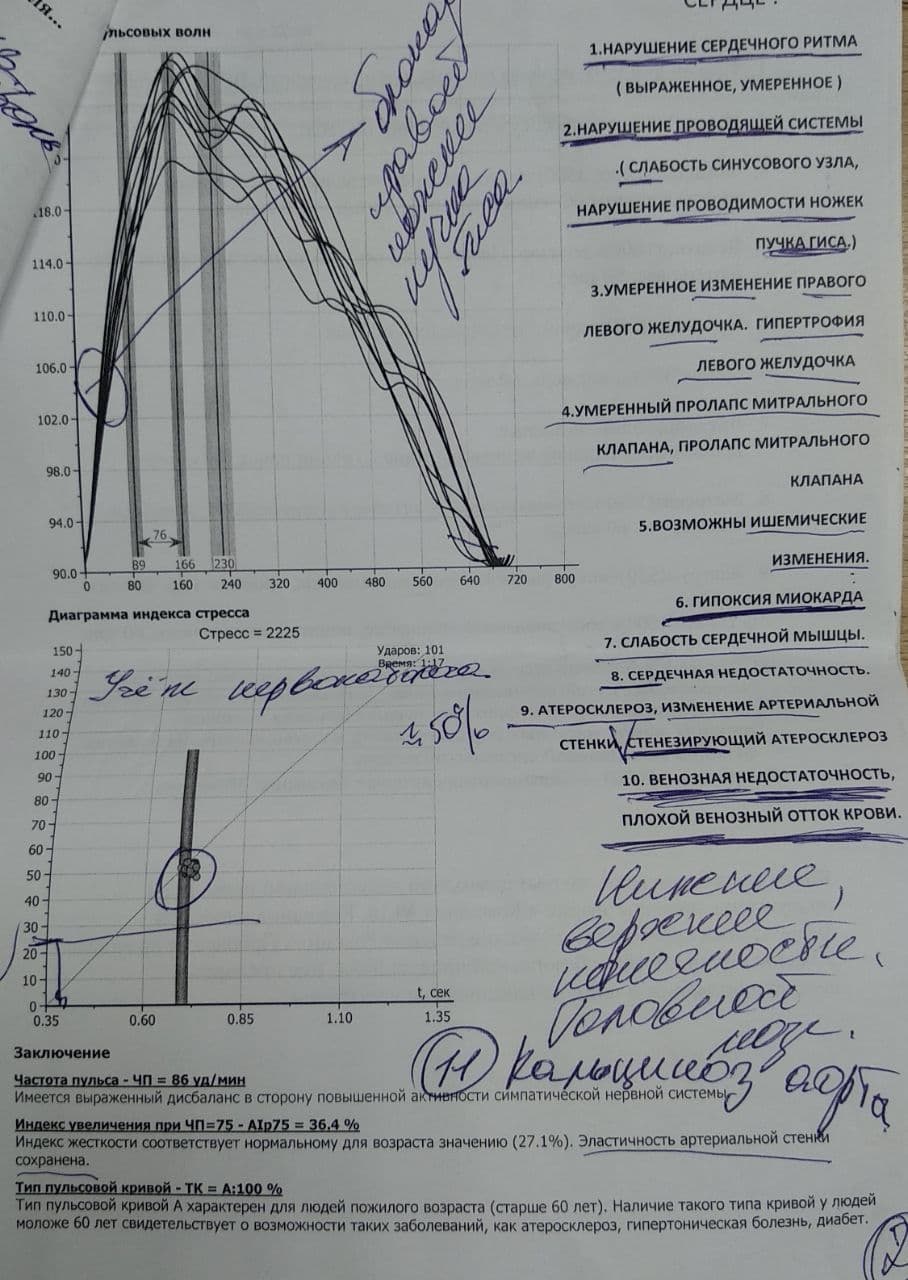 СЕРДЦЕ :
пульсовых волн
1.НАРУШЕНИЕ СЕРДЕЧНОГО РИТМА
( ВЫРАЖЕННОЕ, УМЕРЕННОЕ )
2.НАРУШЕНИЕ ПРОВОДЯЩЕЙ СИСТЕМЫ
.( СЛАБОСТЬ СИНУСОВОГО УЗЛА,
НАРУШЕНИЕ ПРОВОДИМОСТИ НОЖЕК
ПУЧКА ГИСА.)
3.УМЕРЕННОЕ ИЗМЕНЕНИЕ ПРАВОГО
ЛЕВОГО ЖЕЛУДОЧКА. ГИПЕРТРОФИЯ
ЛЕВОГО ЖЕЛУДОЧКА
4.УМЕРЕННЫЙ ПРОЛАПС МИТРАЛЬНОГО
КЛАПАНА, ПРОЛАПС МИТРАЛЬНОГО
КЛАПАНА
5.ВОЗМОЖНЫ ИШЕМИЧЕСКИЕ
ИЗМЕНЕНИЯ.
6. ГИПОКСИЯ МИОКАРДА
7. СЛАБОСТЬ СЕРДЕЧНОЙ МЫШЦЫ.
8. СЕРДЕЧНАЯ НЕДОСТАТОЧНОСТЬ.
9. АТЕРОСКЛЕРОЗ, ИЗМЕНЕНИЕ АРТЕРИАЛЬНОЙ
СТЕНКИ, СТЕНЕЗИРУЮЩИЙ АТЕРОСКЛЕРОЗ
10. ВЕНОЗНАЯ НЕДОСТАТОЧНОСТЬ,
ПЛОХОЙ ВЕНОЗНЫЙ ОТТОК КРОВИ.
Нижние,
верхние
конечности.
Головной
мозг.
11 Кальциноз аорта
правой
ножке
пучка
Гиса.
118.0
114.0
110.0
106.0
102.0
98.0
94.0
90.0
76
89 166 230
0 80 160 240 320 400 480 560 640 720 800
Диаграмма индекса стресса
Стресс = 2225
Ударов: 101
Время: 1:17
≈ 50%
150
140
130
120
110
100
90
80
70
60
50
40
30
20
10
0
t, сек
0.35 0.60 0.85 1.10 1.35
Заключение
Частота пульса - ЧП = 86 уд/мин
Имеется выраженный дисбаланс в сторону повышенной активности симпатической нервной системы
Индекс увеличения при ЧП=75 - AIp75 = 36.4 %
Индекс жесткости соответствует нормальному для возраста значению (27.1%). Эластичность артериальной стенки
сохранена.
Тип пульсовой кривой - ТК = А:100 %
Тип пульсовой кривой А характерен для людей пожилого возраста (старше 60 лет). Наличие такого типа кривой у людей
моложе 60 лет свидетельствует о возможности таких заболеваний, как атеросклероз, гипертоническая болезнь, диабет.